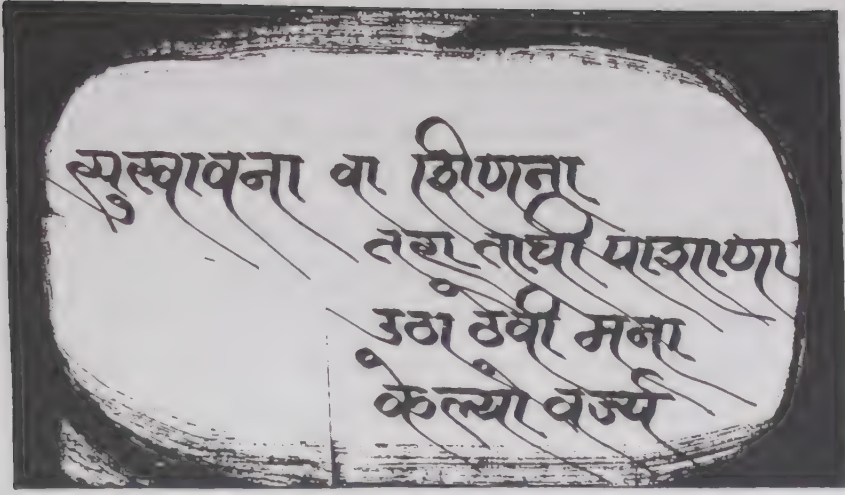 ल्युल्वावना वा शीणना
तग ताघी पाशाणा
उठां ठेवी मना
केल्यां वर्ज्य